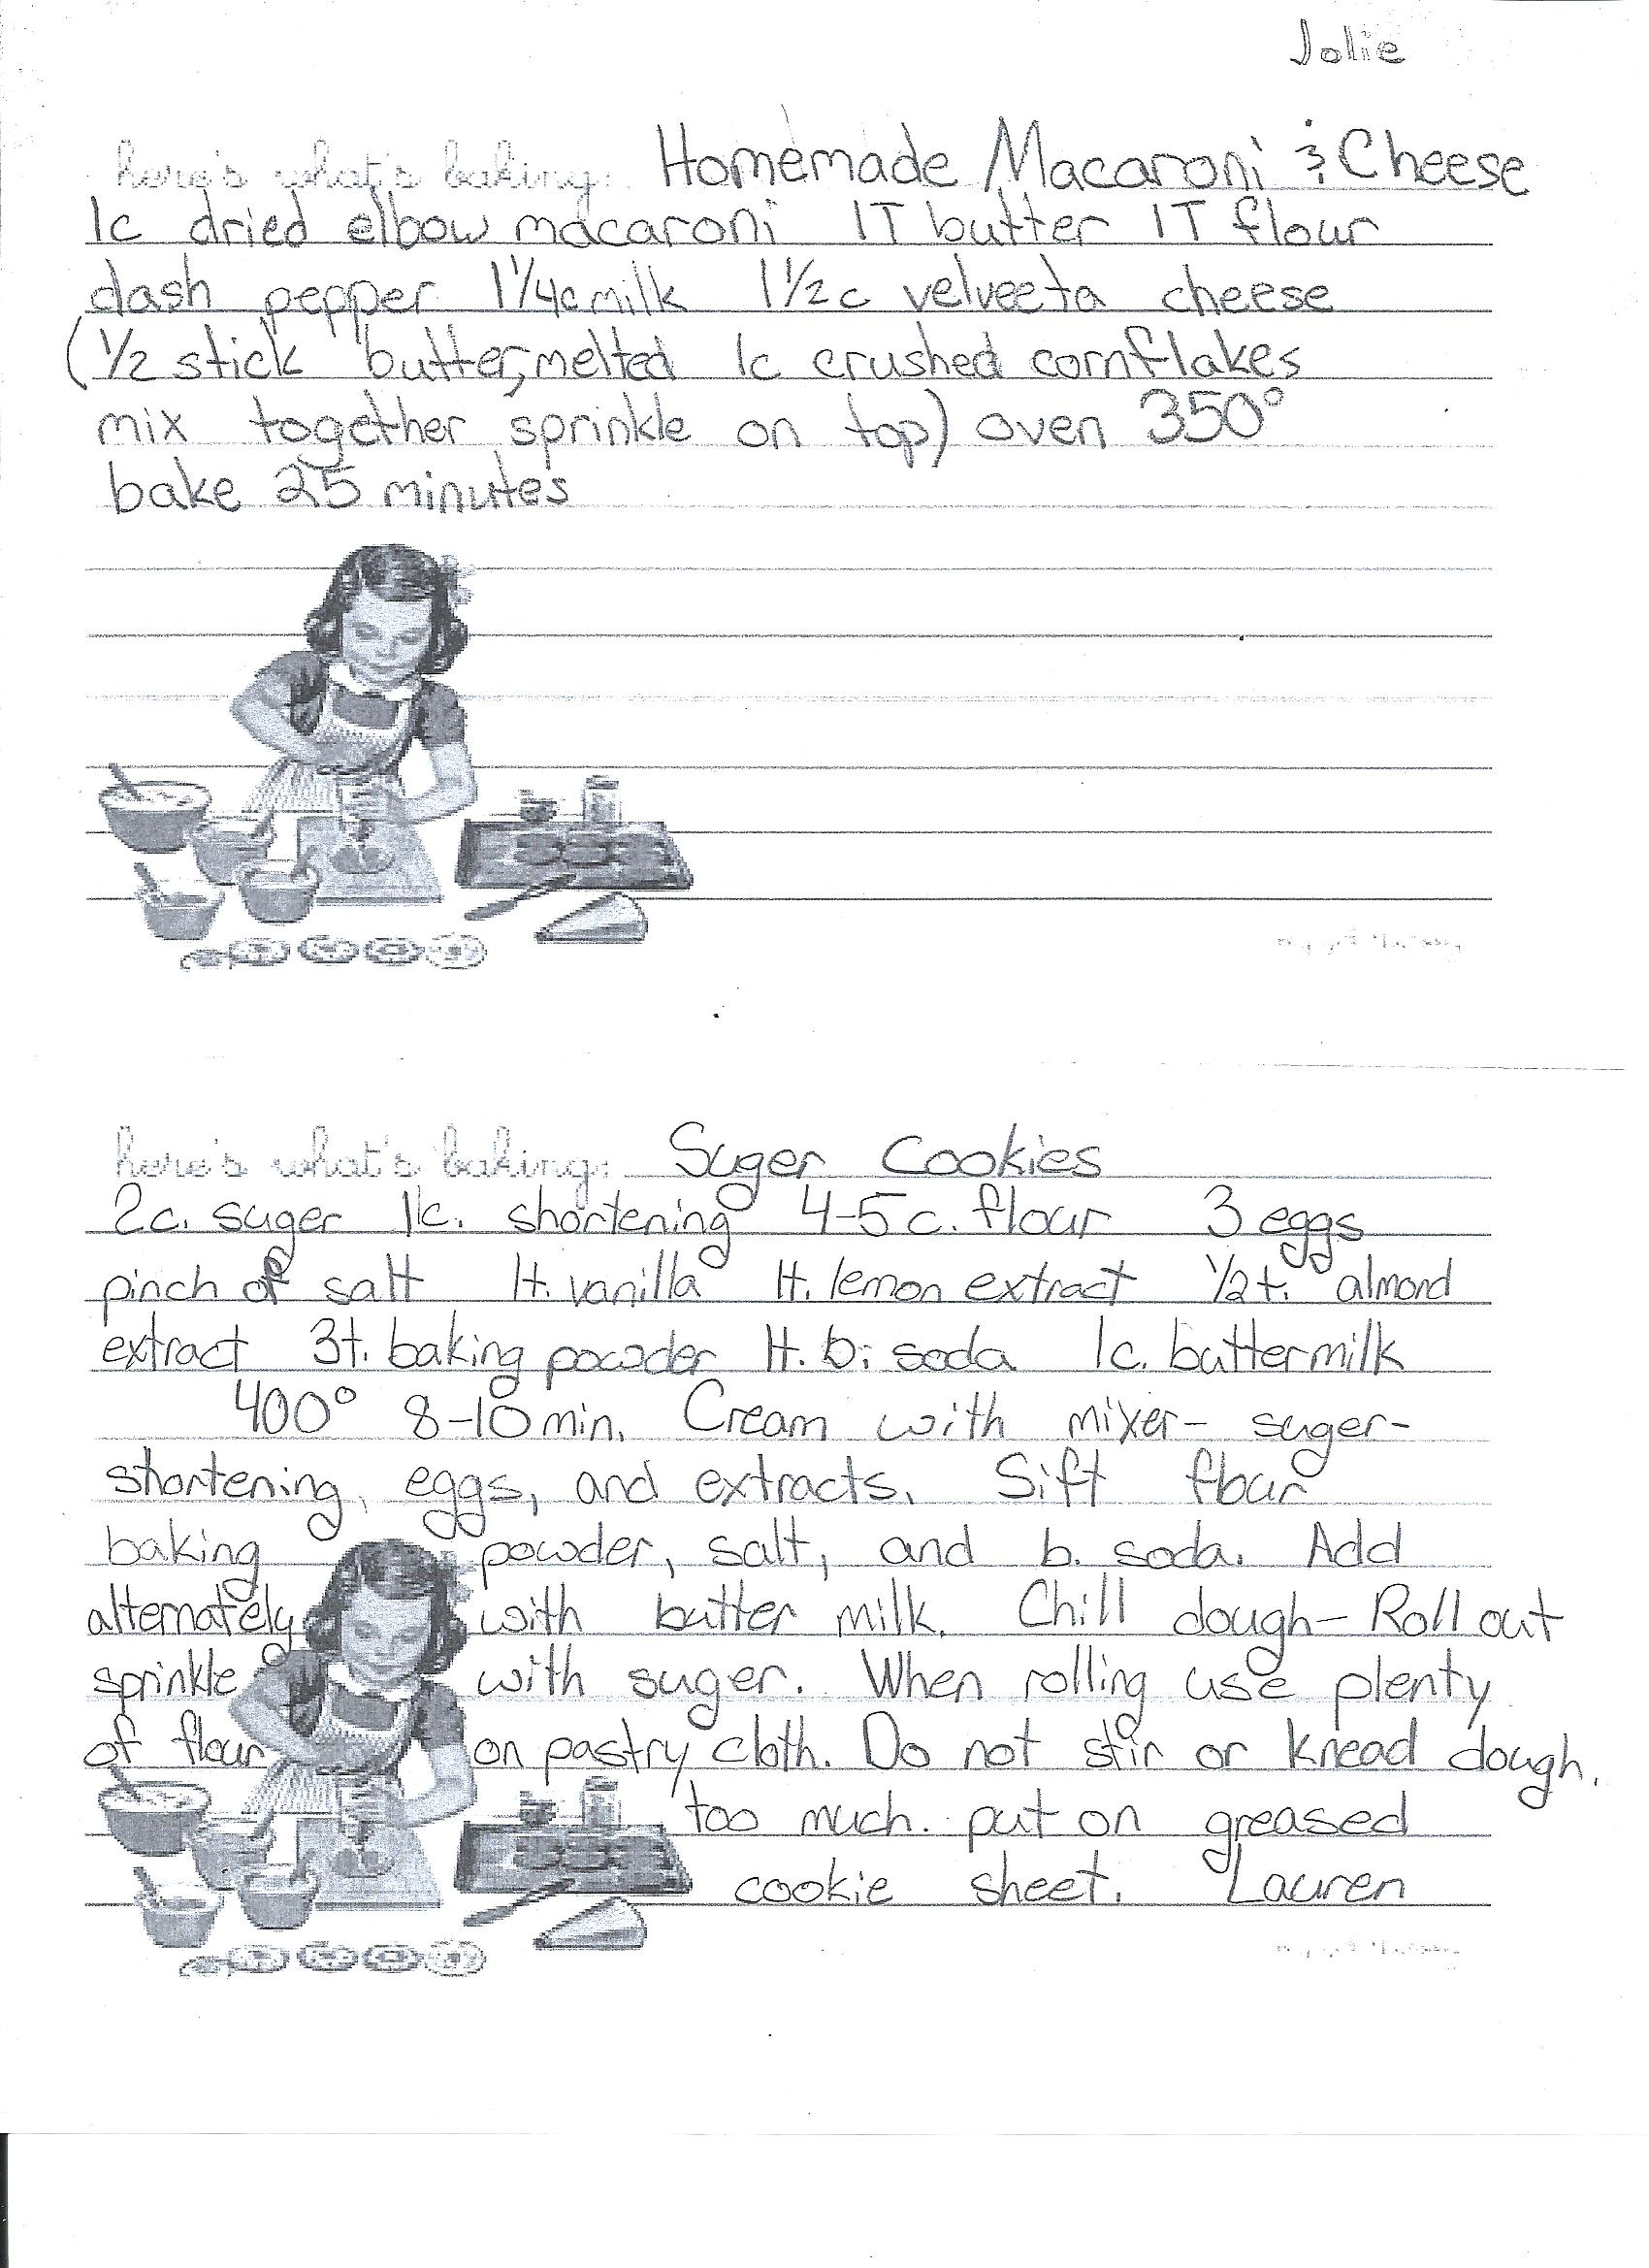 Jolie
here's what's baking: Homemade Macaroni & Cheese
1c dried elbow macaroni 1T butter 1T flour
dash pepper 1 1/4c milk 1 1/2c velveeta cheese
(1/2 stick butter, melted 1c crushed cornflakes
mix together sprinkle on top) oven 350°
bake 25 minutes
here's what's baking: Suger Cookies
2c. suger 1c. shortening 4-5c. flour 3 eggs
pinch of salt 1t. vanilla 1t. lemon extract 1/2t. almond
extract 3t. baking powder 1t. b. soda 1c. buttermilk
400° 8-10 min. Cream with mixer- suger-
shortening, eggs, and extracts. Sift flour
baking powder, salt, and b. soda. Add
alternately with butter milk. Chill dough- Roll out
sprinkle with suger. When rolling use plenty
of flour on pastry cloth. Do not stir or knead dough.
too much. put on greased
cookie sheet. Lauren